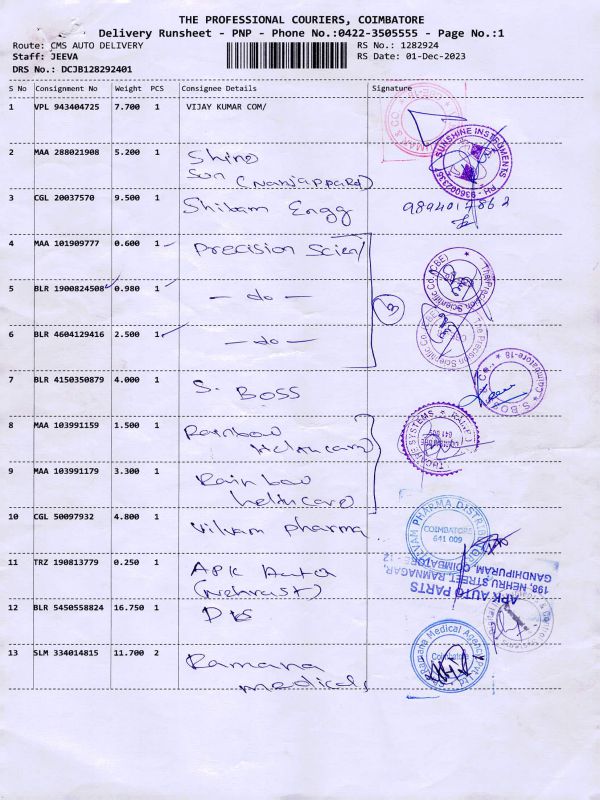 THE PROFESSIONAL COURIERS, COIMBATORE
Delivery Runsheet - PNP - Phone No.:0422-3505555 - Page No.:1
Route: CMS AUTO DELIVERY RS No.: 1282924
Staff: JEEVA RS Date: 01-Dec-2023
DRS No.: DCJB128292401
S No Consignment No Weight PCS Consignee Details Signature
1 VPL 943404725 7.700 1 VIJAY KUMAR COM/
2 MAA 288021908 5.200 1 Shine
Sun
SUNSHINE INSTRUMENTS
3 CGL 20037570 9.500 1 Engg
4 MAA 101909777 0.600 1 Precision Scien
5 BLR 1900824508 0.980 1 - do -
The Precision Scientific Co (CBE)
6 BLR 4604129416 2.500 1 - do -
3
The Precision Scientific Co (CBE)
7 BLR 4150350879 4.000 1 S. BOSS
Coimbatore-18
8 MAA 103991159 1.500 1 Rainbow
Helthcare
9 MAA 103991179 3.300 1 Rainbow
helthcare
10 CGL 50097932 4.800 1 Vilvam pharma
VILVAM PHARMA DISTRIBUTORS
COIMBATORE
641 009
11 TRZ 190813779 0.250 1 APK Auto
APK AUTO PARTS
198, NEHRU STREET, RAMNAGAR,
GANDHIPURAM, COIMBATORE - 12
12 BLR 5450558824 16.750 1
13 SLM 334014815 11.700 2 Ramana
medicals
Ramana Medical Agency Pvt Ltd
Coimbatore